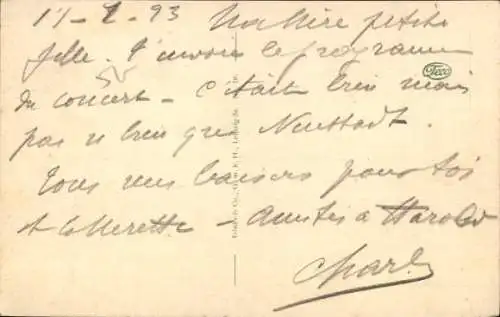 Ma chère petite
fille. J'envoie le programme
du concert - C'était bien mais
pas si bien que Neustadt.
Tous mes baisers pour toi
et Collerette - Amitiés à Harold
Charl
Teco